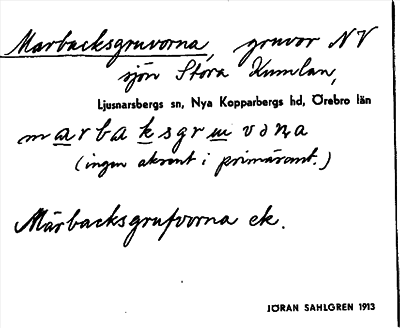 Marbacksgruvorna, gruvor NV
sjön Stora Kumlan,
Ljusnarsbergs sn, Nya Kopparbergs hd, Örebro län
marbaksgruvoɳa
(ingen akcent i primäromt.)
Märbacksgrufvorna ek.
JÖRAN SAHLGREN 1913